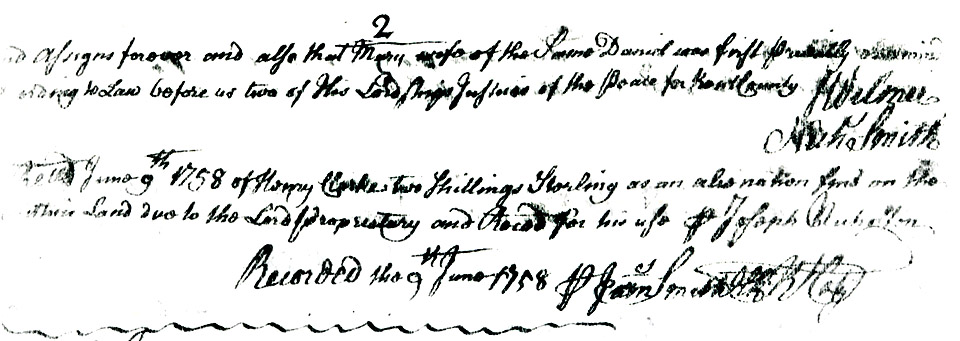 2
Assigns forever and also that Mary wife of the Same Daniel was first Privately
to Law before us two of His Lordships Justices of the Peace for Kent County
Smith
June 9th 1758 of Henry Clarke two Shillings Sterling as an alienation fine on the
Land due to the Lord proprietary and Recd for his use Joseph
Recorded the 9th June 1758 Jas Smith